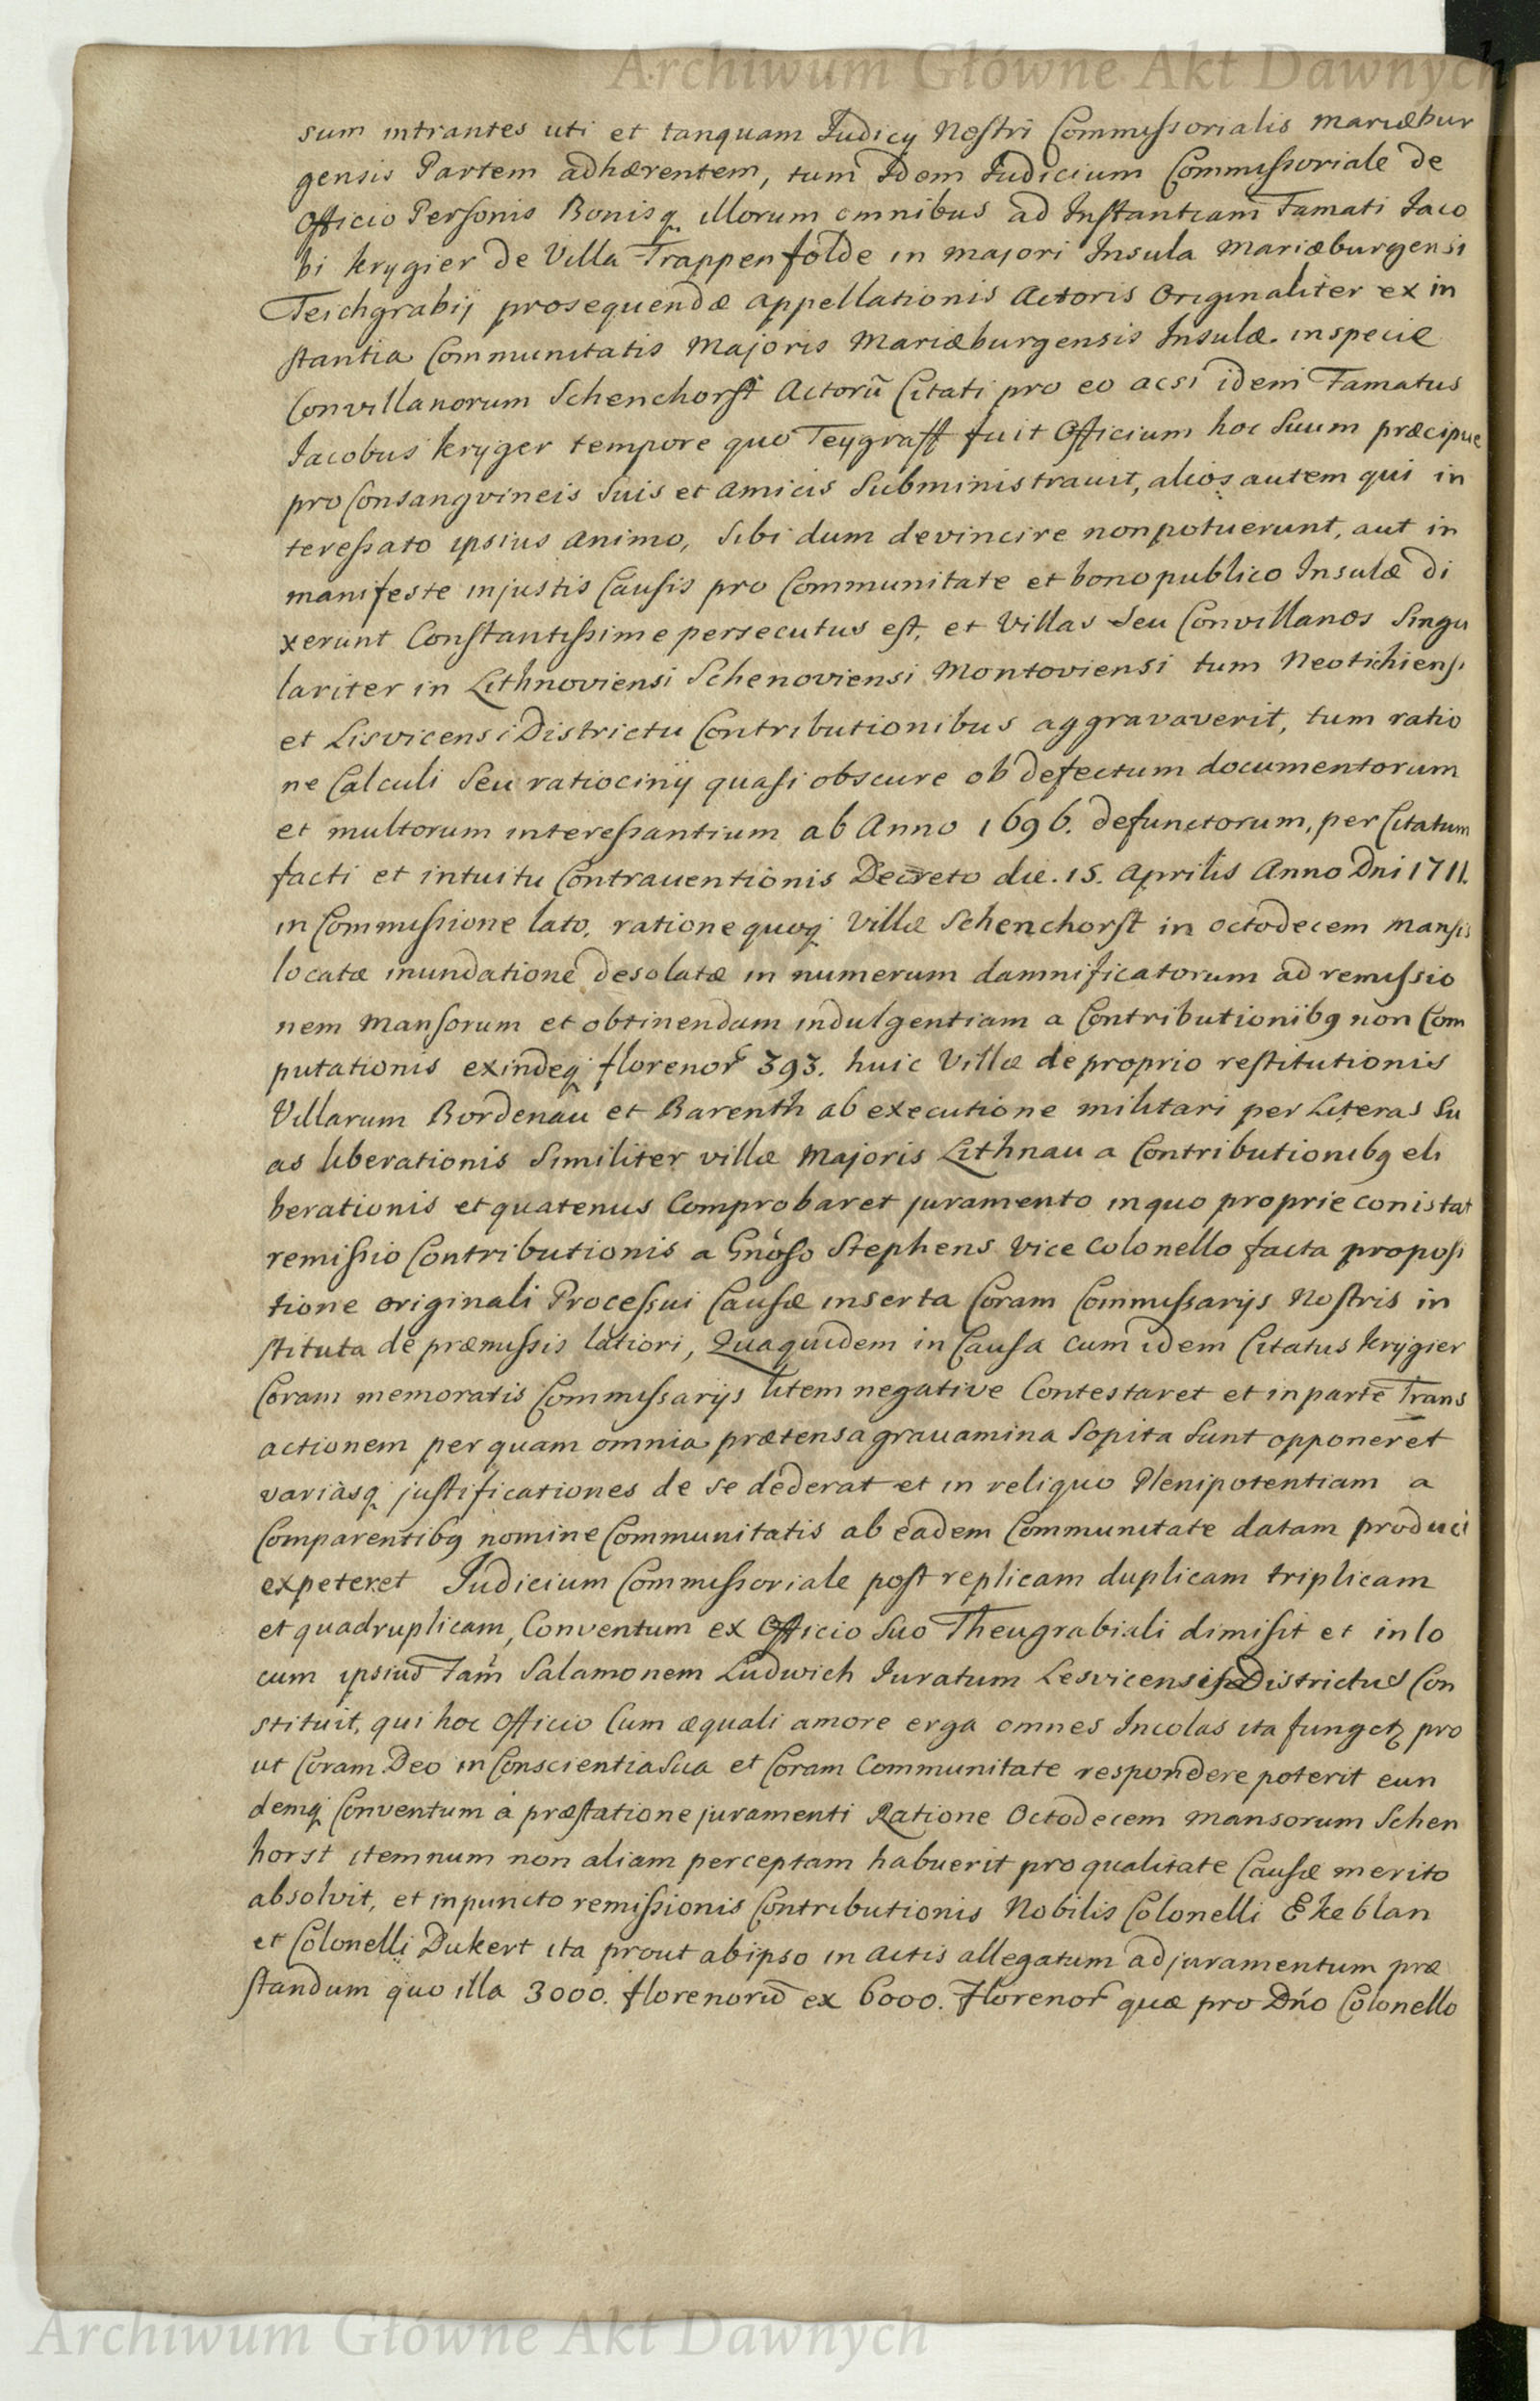 Archiwum Główne Akt Dawnych
sum intrantes uti et tanquam Judicij Nostri Commissorialis Mariæbur
gensis Partem adhærentem, tum Idem Judicium Commissoriale de
Officio Personis Bonisq illorum omnibus ad Instantiam Famati Jaco
bi Krygier de Villa Trappenfolde in majori Insula Mariæburgensi
Teichgrabij prosequendæ appellationis Actoris Originaliter ex in
stantia Communitatis Majoris Mariæburgensis Insulæ inspecie
Convillanorum Schenchorst Actorũ Citati pro eo acsi idem Famatus
Jacobus Kryger tempore quo Teygraff fuit Officium hoc Suum præcipue
pro Consangvineis Suis et Amicis Subministravit, alios autem qui in
teressato ipsius animo, Sibi dum devincire non potuerunt, aut in
manifeste injustis Causis pro Communitate et bono publico Insulæ di
xerunt Constantissime persecutus est, et Villas Seu Convillanos Singu
lariter in Lithnoviensi Schenoviensi Montoviensi tum Neotichiensi
et Lisvicensi Districtu Contributionibus aggravaverit, tum ratio
ne Calculi Seu ratiocinij quasi obscure ob defectum documentorum
et multorum interessantium ab Anno 1696. defunctorum, per Citatum
facti et intuitu Contraventionis Decreto die. 15. Aprilis Anno Dni 1711.
in Commissione lato, ratione quoq Villæ Schenchorst in octodecem mansis
locatæ inundatione desolatæ in numerum damnificatorum ad remissio
nem mansorum et obtinendam indulgentiam a Contributionibq non Com
putationis exindeq florenor 393. huic Villæ de proprio restitutionis
Villarum Bordenau et Barenth ab executione militari per Literas Su
as liberationis Similiter villæ Majoris Lithnau a Contributionibq eli
berationis et quatenus Comprobaret juramento in quo proprie conistat
remissio Contributionis a Gnóso Stephens Vice Colonello facta proposi
tione originali Processui Causæ inserta Coram Commissarijs Nostris in
stituta de præmissis latiori, Quaquidem in Causa cum idem Citatus Krygier
Coram memoratis Commissarijs litem negative Contestaret et in parte Trans
actionem per quam omnia prætensa gravamina Sopita Sunt opponeret
variasq justificationes de se dederat et in reliquo Plenipotentiam a
Comparentibq nomine Communitatis ab eadem Communitate datam produci
expeteret Judicium Commissoriale post replicam duplicam triplicam
et quadruplicam, Conventum ex Officio Suo Theugrabiali dimisit et in lo
cum ipsius Fam Salamonem Ludwich Juratum Lesvicensis Districtus Con
stituit, qui hoc Officio Cum æquali amore erga omnes Incolas ita funget pro
ut Coram Deo in Conscientia Sua et Coram Communitate respondere poterit eun
demq Conventum á præstatione juramenti Ratione Octodecem mansorum Schen
horst item num non aliam perceptam habuerit pro qualitate Causæ merito
absolvit, et in puncto remissionis Contributionis Nobilis Colonelli Ekeblan
et Colonelli Dukert ita prout ab ipso in actis allegatum ad juramentum præ
standum quo illa 3000. florenorũ ex 6000. Florenor quæ pro Dńo Colonello
Archiwum Główne Akt Dawnych